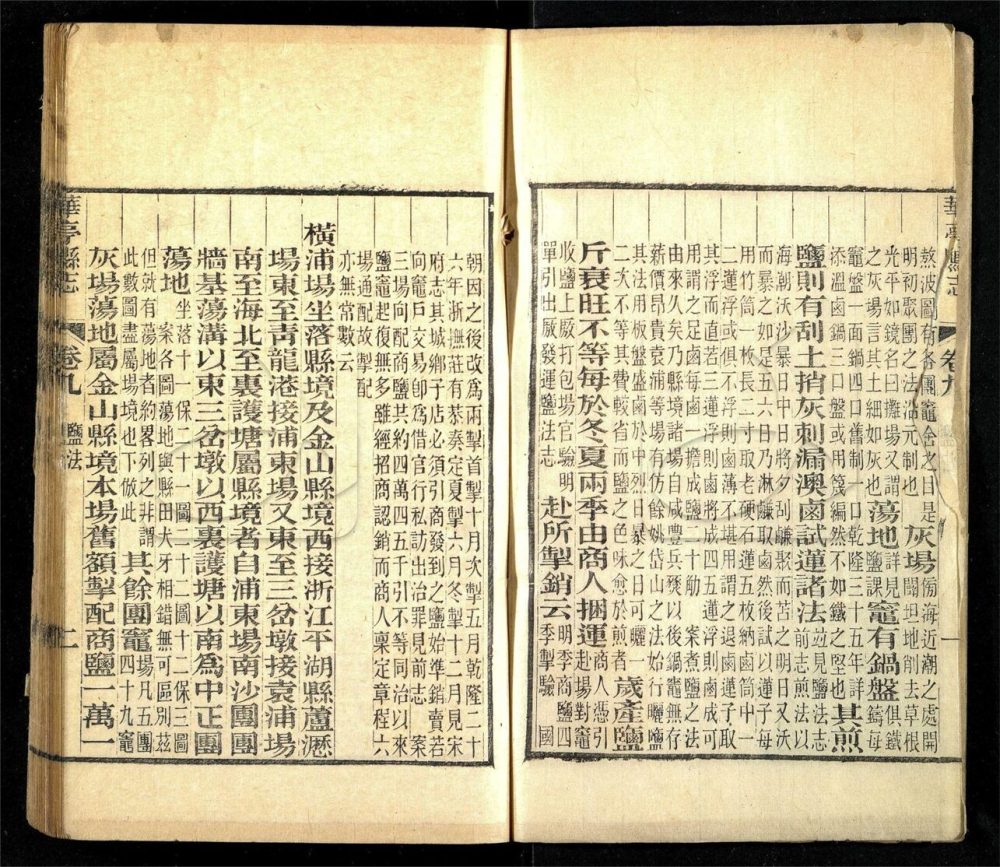 華亭縣志
卷九
一
熬波圖有各團竈舍之目是
明初聚團之法沿元制也
灰場
傍海近潮之處開
闢坦地削去草根
光平如鏡名曰攤場又謂
之灰場言其土細如灰也
蕩地
詳見
鹽課
竈有鍋盤
俱鐵
鑄每
竈盤一面鍋四口舊制一口乾隆三十五年詳
添溫鹵鍋三口盤或用篾編然不如鐵之堅也
其煎
鹽則有刮土捎灰刺漏澳鹵試蓮諸法
前志煎法以
海潮沃沙暴日中日將夕刮鹻聚而苫之明日又沃
而暴之如是五六日乃淋鹻取鹵然後試以蓮子每
用竹筒一枚長二寸取老硬石蓮五枚納鹵筒中一
二蓮浮或俱不浮則鹵薄不堪用謂之退鹵蓮子取
其浮而直若三蓮浮則鹵將成四五蓮浮則鹵成可
用謂之足鹵每一擔成鹽二十觔
案煮鹽之法
由來久矣乃縣境諸場自咸豐兵燹以後鍋竈無存
薪價昂貴袁浦等場有仿餘姚岱山之法始行曬鹽
其法用板盤盛鹵於中烈日暴之日可曬一
二次不等其費較省而鹽之色味愈於煎者
歲產鹽
斤衰旺不等每於冬夏兩季由商人捆運
商人憑引
赴場對竈
收鹽上廠打包場官驗明
單引出廠發運鹽法志
赴所掣銷云
明季商鹽四
季掣驗國
朝因之後改爲兩掣首掣十月次掣五月乾隆二十
六年浙撫莊有恭奏定夏掣六月冬掣十二月見宋
府志其城鄉子店必須引商發到之鹽始準銷賣若
向竈戶交易卽爲借官行私訪出治罪見前志
案
三場向配商鹽共約四萬四五千引不等同治以來
鹽竈起復無多雖經招商認銷而商人稟定章程六
場通配故掣配
亦無常數云
橫浦場坐落縣境及金山縣境西接浙江平湖縣蘆瀝
場東至靑龍港接浦東場又東至三岔墩接袁浦場
南至海北至裏護塘屬縣境者自浦東場南沙團團
牆墓蕩溝以東三岔墩以西裏護塘以南爲中正團
蕩地
坐落十一保二十一圖二十二圖十二保三圖
案各圖蕩地與縣田犬牙相錯無可區別茲
但就有蕩地者約畧列之非謂
此數圖盡屬場境也下倣此
其餘團竈
場凡五團
四十九竈
灰場蕩地屬金山縣境本場舊額掣配商鹽一萬一
華亭縣志
卷九
鹽法
二